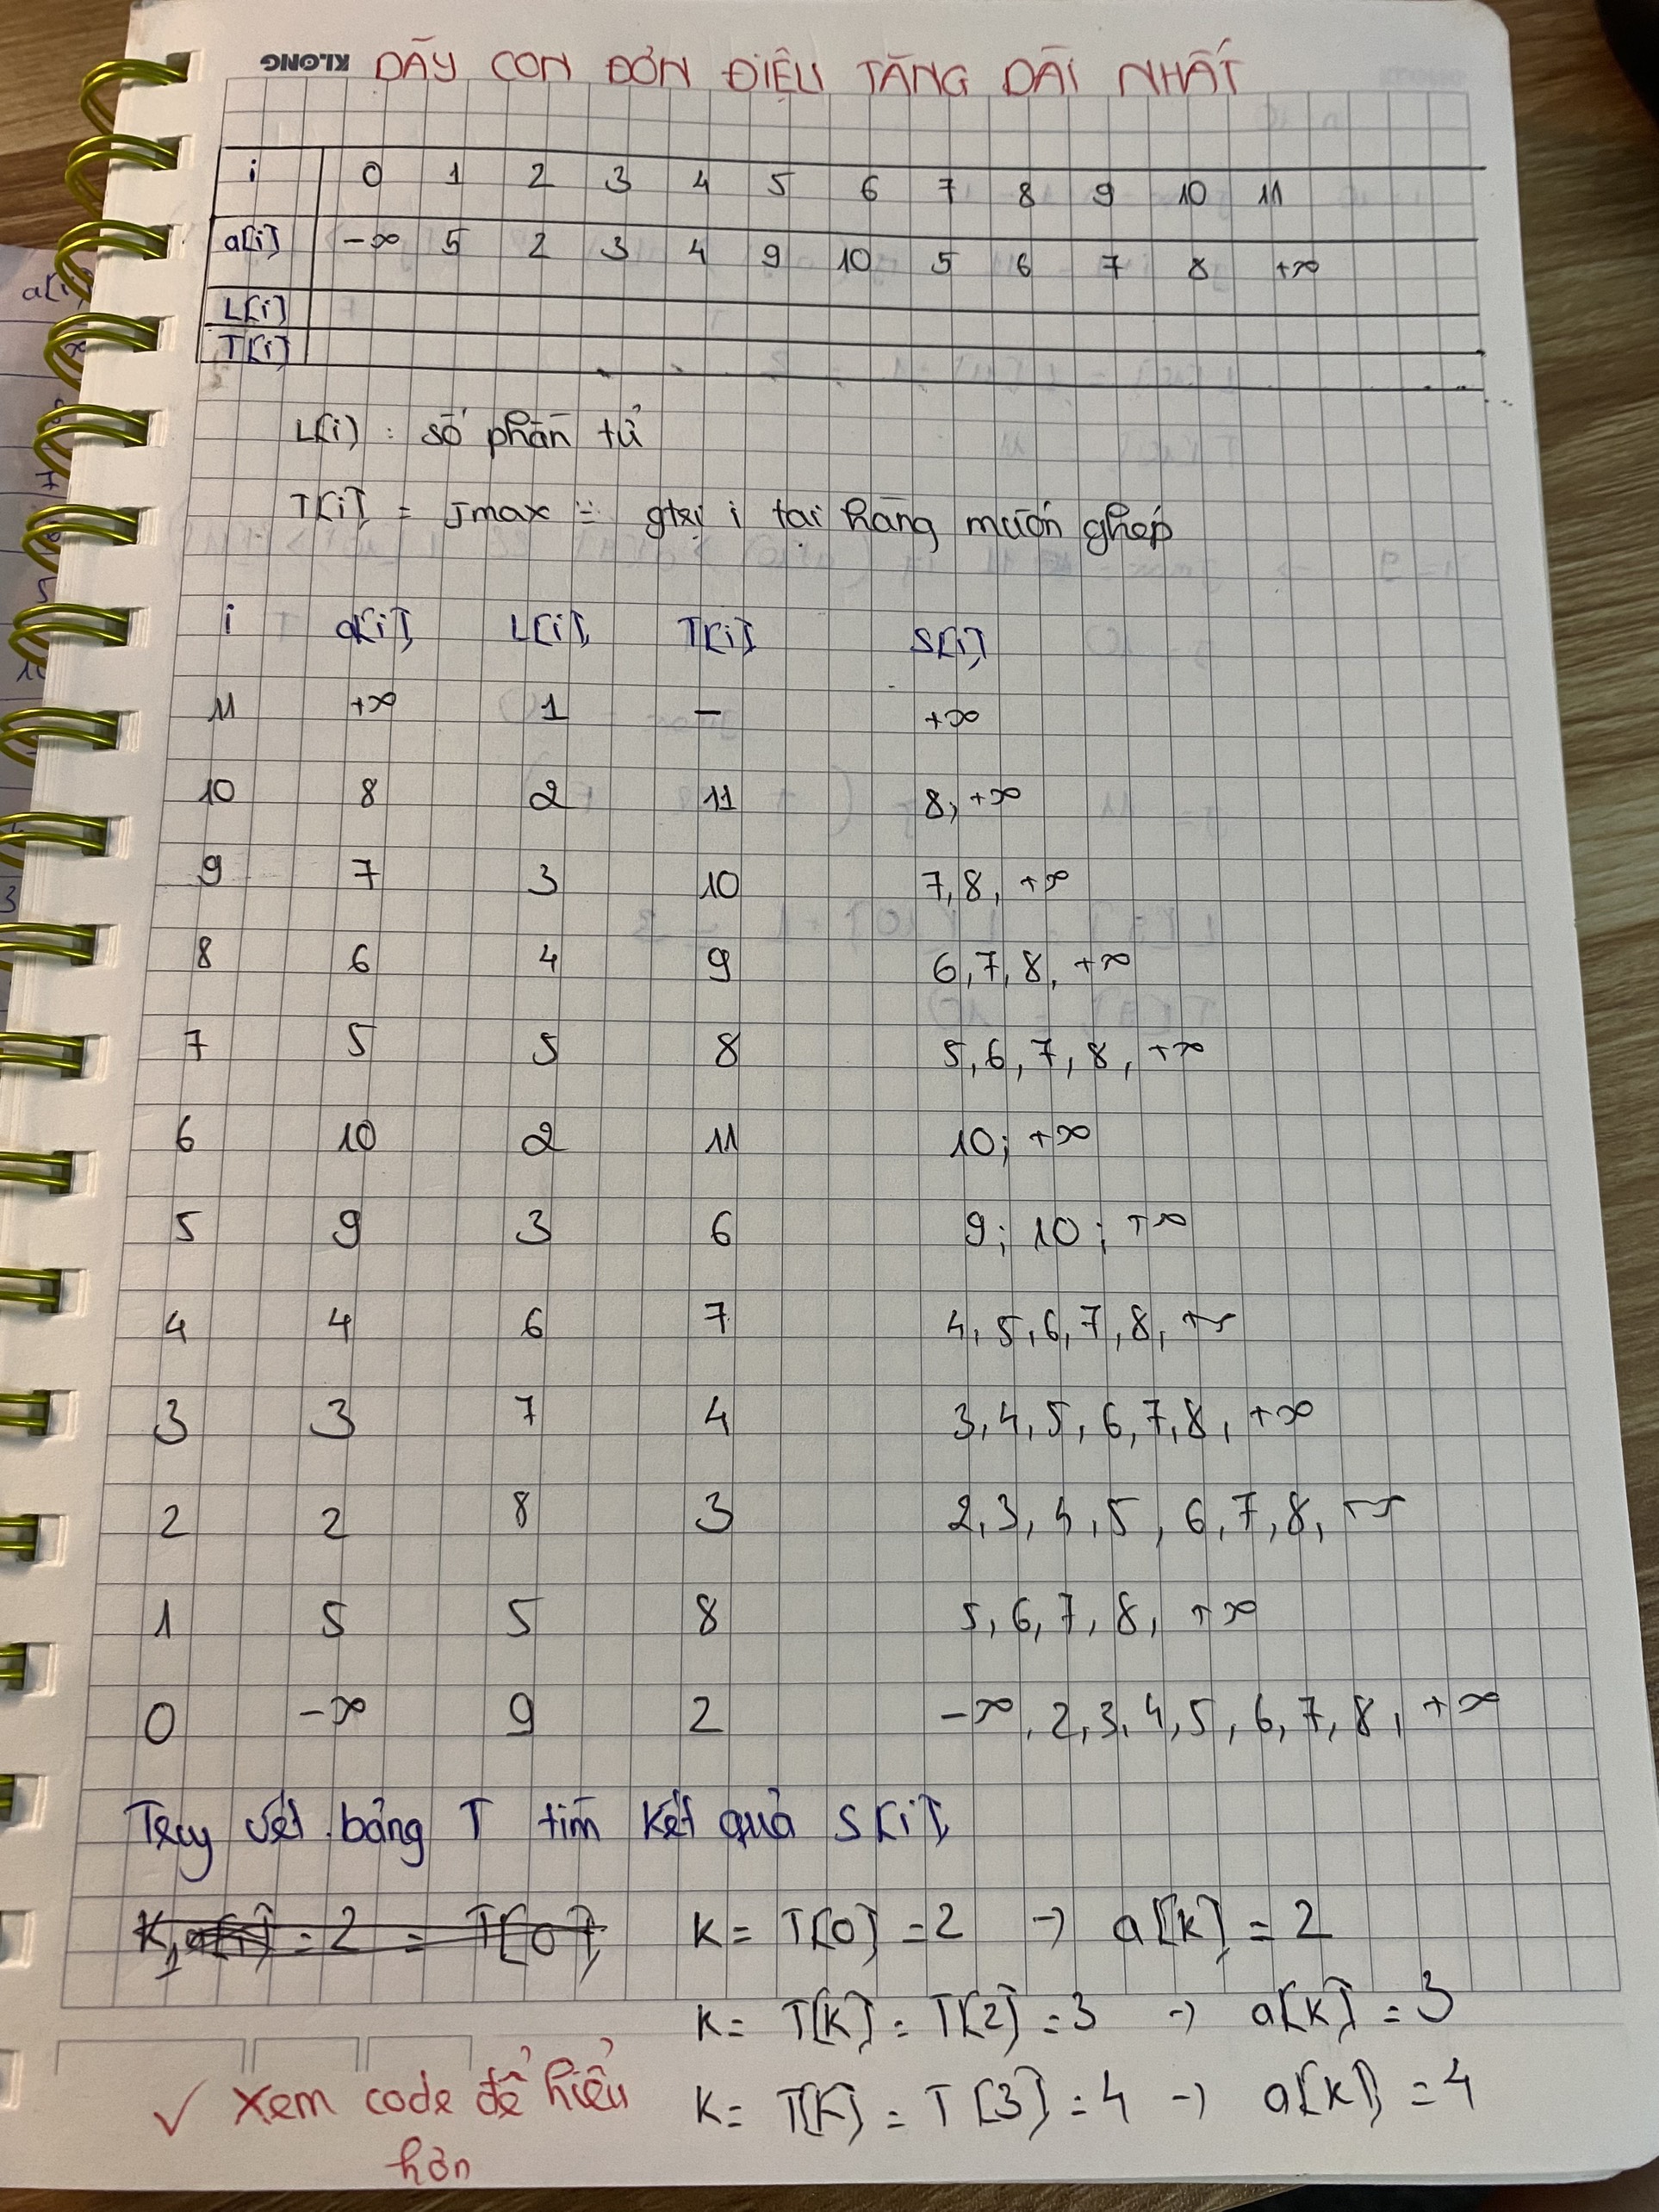 KLONG DÃY CON ĐƠN ĐIỆU TĂNG DÀI NHẤT
i 0 1 2 3 4 5 6 7 8 9 10 11
a[i] -∞ 5 2 3 4 9 10 5 6 7 8 +∞
L[i]
T[i]
L[i] : số phần tử
T[i] = Jmax = gtrị i tại hàng muốn ghép
i a[i] L[i] T[i] S[i]
11 +∞ 1 - +∞
10 8 2 11 8, +∞
9 7 3 10 7, 8, +∞
8 6 4 9 6, 7, 8, +∞
7 5 5 8 5, 6, 7, 8, +∞
6 10 2 11 10; +∞
5 9 3 6 9; 10; +∞
4 4 6 7 4, 5, 6, 7, 8, +∞
3 3 7 4 3, 4, 5, 6, 7, 8, +∞
2 2 8 3 2, 3, 4, 5, 6, 7, 8, +∞
1 5 5 8 5, 6, 7, 8, +∞
0 -∞ 9 2 -∞, 2, 3, 4, 5, 6, 7, 8, +∞
Truy vết bảng T tìm kết quả S[i]
= 2 = T[0] K = T[0] = 2 → a[K] = 2
K = T[K] = T[2] = 3 → a[K] = 3
K = T[K] = T[3] = 4 → a[K] = 4
✓ Xem code để hiểu
hơn